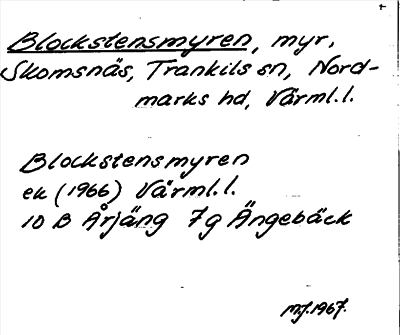 Blockstensmyren, myr,
Skomsnäs, Trankils sn, Nord-
marks hd, Värml.l.
Blockstensmyren
ek (1966) Värml.l.
10 B Årjäng 7g Ängebäck
MJ.1967.